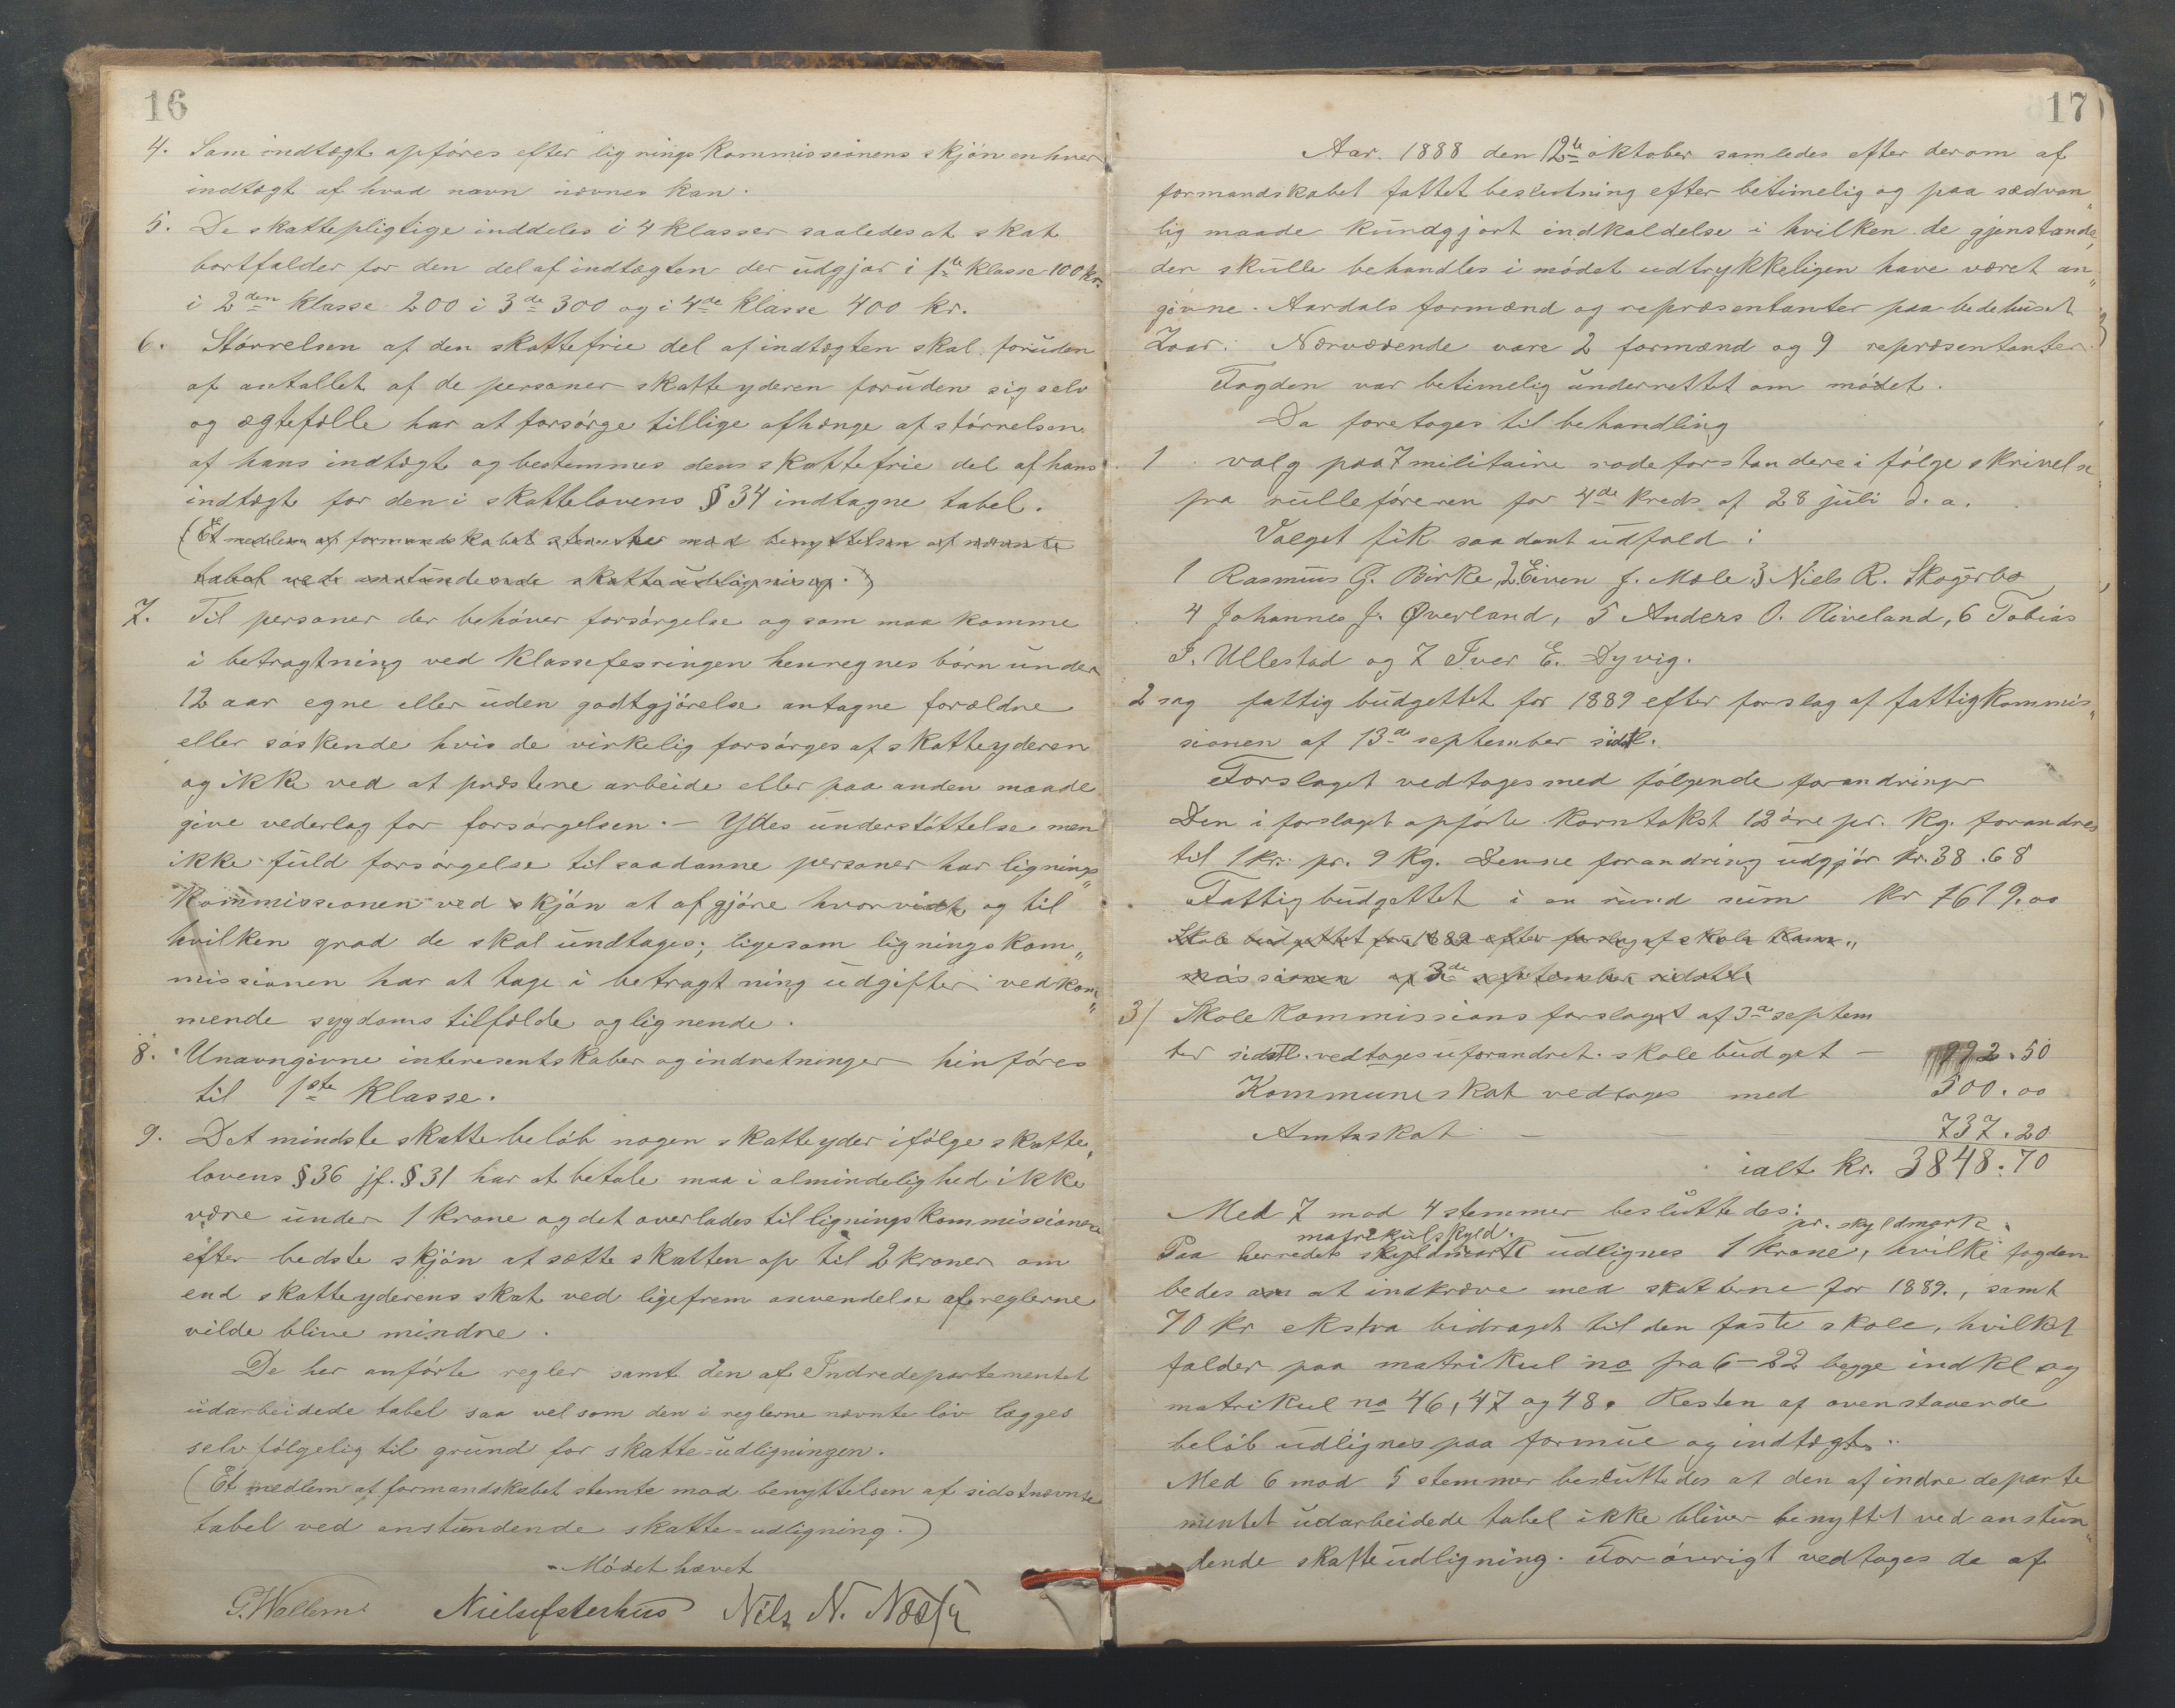 16
4. Som indtægt opföres efter ligningskommissionens skjön enhver
indtægt af hvad navn nævnes kan.
5. De skattepligtige inddeles i 4 klasser saaledes at skat
bortfalder for den del af indtægten der udgjør i 1ste klasse 100 kr.
i 2den klasse 200 i 3de 300 og i 4de klasse 400 kr.
6. Störrelsen af den skattefrie del af indtægten skal foruden
af antallet af de personer skatteyderen foruden sig selv
og ægtefælle har at forsörge tillige afhænge af störrelsen
af hans indtægt og bestemmes den skattefrie del af hans
indtægt for den i skattelovens § 34 indtagne tabel.
(Et medlem af formandskabet stemte mod benyttelsen af nævnte
tabel ved anstundende skatteudligning.)
7. Til personer der behöver forsörgelse og som maa komme
i betragtning ved klassefesringen henregnes börn under
12 aar egne eller uden godtgjörelse antagne forældre
eller söskende hvis de virkelig forsörges af skatteyderen
og ikke ved at præstere arbeide eller paa anden maade
give vederlag for forsörgelsen. — Ydes understöttelse men
ikke fuld forsörgelse til saadanne personer har lignings„
kommissionen ved skjön at afgjöre hvorvidt og til
hvilken grad de skal undtages; ligesom ligningskom„
missionen har at tage i betragtning udgifter vedkom„
mende sygdomstilfælde og lignende.
8. Unavngivne interesentskaber og indretninger henföres
til 1ste klasse.
9. Det mindste skattebelöb nogen skatteyder ifölge skatte„
lovens § 36 jf. § 31 har at betale maa i almindelighed ikke
være under 1 krone og det overlades til ligningskommissionen
efter bedste skjön at sætte skatten op til 2 kroner om
end skatteyderens skat ved ligefrem anvendelse af reglerne
vilde blive mindre.
De her anförte regler samt den af Indredepartementet
udarbeidede tabel saa vel som den i reglerne nævnte lov lægges
selvfölgelig til grund for skatte=udligningen.
(Et medlem af formandskabet stemte mod benyttelsen af sidstnævnte
tabel ved anstundende skatte=udligning.)
Mödet hævet
G. Wallem Niels Østerhus Nils N. Næsse
17
Aar. 1888 den 12te oktober samledes efter derom af
formandskabet fattet beslutning efter betimelig og paa sædvan„
lig maade kundgjort indkaldelse i hvilken de gjenstande,
der skulle behandles i mödet udtrykkeligen have været an„
givne. Aardals formænd og repræsentanter paa bedehuset
Zoar. Nærværende vare 2 formænd og 9 repræsentanter.
Fogden var betimelig underrettet om mödet.
Da foretages til behandling
1 valg paa 7 militaire rodeforstandere i fölge skrivelse
fra rulleföreren for 4de kreds af 28 juli d. a.
Valget fik saadant udfald:
1 Rasmus G. Birke, 2 Eiven J. Mæle 3 Niels R. Skogerbø
4 Johannes J. Øverland, 5 Anders O. Riveland, 6 Tobias
T. Ullestad og 7 Iver E. Dyvig.
2 sag fattigbudgettet for 1889 efter forslag af fattigkommis„
sionen af 13de september sidstl.
Forslaget vedtages med fölgende forandringer
Den i forslaget opförte korntakst 12 öre pr. kg. forandres
til 1 kr. pr. 9 kg. Denne forandring udgjör kr. 38.68
Fattigbudgettet i en rund sum kr 1619.00
Skole budgettet for 1889 efter forslag af skole kom„
missionen af 3de september sidstl
3) Skolekommissions forslaget af 3de septem
ber sidstl. vedtages uforandret. skolebudget — 992.50
Kommuneskat vedtages med 500.00
Amtsskat — 737.20
ialt kr. 3848.70
Med 7 mod 4 stemmer besluttedes:
matrikulskyld. pr. skyldmark.
Paa herredets skyldmark udlignes 1 krone, hvilke fogden
bedes om at indkræve med skatterne for 1889., samt
70 kr ekstra bidraget til den faste skole, hvilkt
falder paa matrikul no fra 6–22 begge indkl og
matrikul no 46, 47 og 48. Resten af ovenstaaende
belöb udlignes paa formue og indtægt.
Med 6 mod 5 stemmer besluttedes at den af indredeparte
mentet udarbeidede tabel ikke bliver benyttet ved anstun„
dende skatteudligning. For övrigt vedtages de af